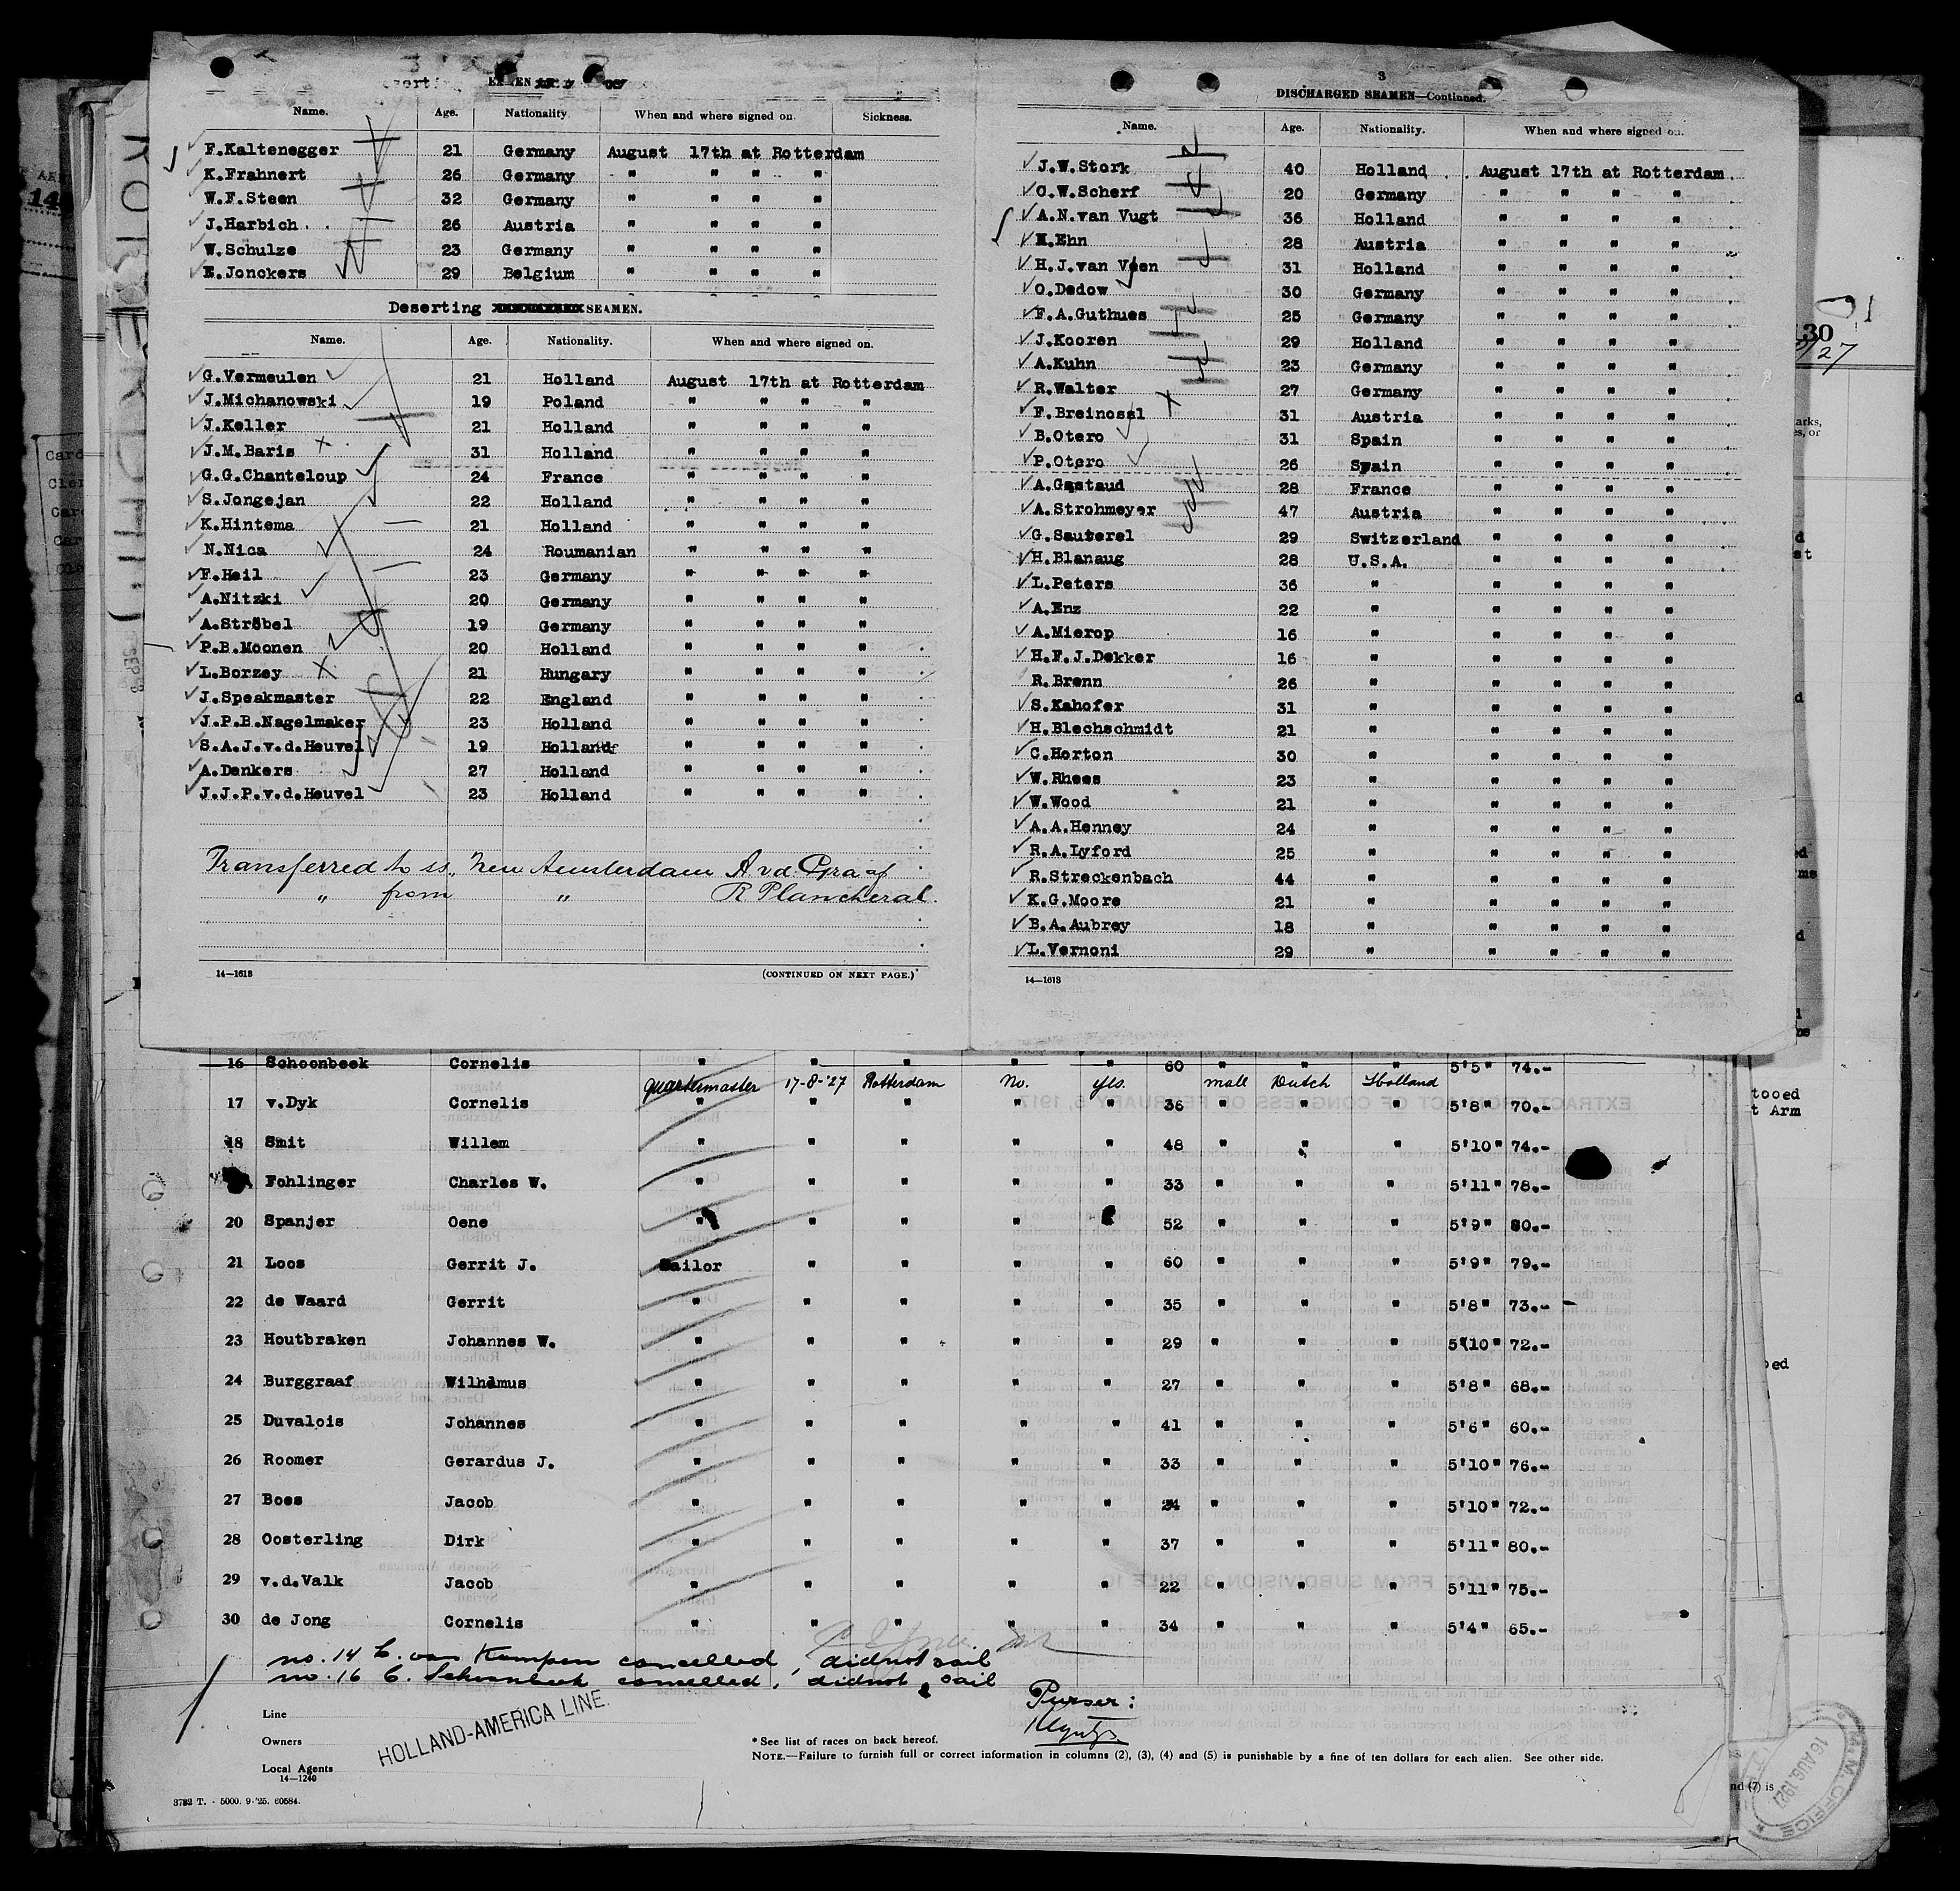 Deserting
Name. Age. Nationality. When and where signed on. Sickness.
F.Kaltenegger 21 Germany August 17th at Rotterdam
K.Frahnert 26 Germany " " " "
W.F.Steen 32 Germany " " " "
J.Harbich 26 Austria " " " "
W.Schulze 23 Germany " " " "
E.Jonckers 29 Belgium " " " "
Deserting SEAMEN.
Name. Age. Nationality. When and where signed on.
G.Vermeulen 21 Holland August 17th at Rotterdam
J.Michanowski 19 Poland " " " "
J.Keller 21 Holland " " " "
J.M.Baris 31 Holland " " " "
G.G.Chanteloup 24 France " " " "
S.Jongejan 22 Holland " " " "
K.Hintema 21 Holland " " " "
N.Nica 24 Roumanian " " " "
F.Heil 23 Germany " " " "
A.Nitzki 20 Germany " " " "
A.Ströbel 19 Germany " " " "
P.B.Moonen 20 Holland " " " "
L.Borzey 21 Hungary " " " "
J.Speakmaster 22 England " " " "
J.P.B.Nagelmaker 23 Holland " " " "
S.A.J.v.d.Heuvel 19 Holland " " " "
A.Denkers 27 Holland " " " "
J.J.P.v.d.Heuvel 23 Holland " " " "
Transferred to ss. New Amsterdam A v d Graaf
" from " R Plancheral.
14—1613 (CONTINUED ON NEXT PAGE.)
3
DISCHARGED SEAMEN—Continued.
Name. Age. Nationality. When and where signed on.
J.W.Stork 40 Holland August 17th at Rotterdam
O.W.Scherf 20 Germany " " " "
A.N.van Vugt 36 Holland " " " "
Ehn 28 Austria " " " "
H.J.van Veen 31 Holland " " " "
O.Dedow 30 Germany " " " "
F.A.Guthues 25 Germany " " " "
J.Kooren 29 Holland " " " "
A.Kuhn 23 Germany " " " "
R.Walter 27 Germany " " " "
F.Breinossl 31 Austria " " " "
B.Otero 31 Spain " " " "
P.Otero 26 Spain " " " "
A.Gastaud 28 France " " " "
A.Strohmeyer 47 Austria " " " "
G.Sauterel 29 Switzerland " " " "
H.Blanaug 28 U.S.A. " " " "
L.Peters 36 " " " " "
A.Enz 22 " " " " "
A.Mierop 16 " " " " "
H.F.J.Dekker 16 " " " " "
R.Brenn 26 " " " " "
S.Kahofer 31 " " " " "
H.Blechschmidt 21 " " " " "
C.Horton 30 " " " " "
W.Rhees 23 " " " " "
W.Wood 21 " " " " "
A.A.Henney 24 " " " " "
R.A.Lyford 25 " " " " "
R.Streckenbach 44 " " " " "
K.G.Moore 21 " " " " "
B.A.Aubrey 18 " " " " "
L.Vernoni 29 " " " " "
14—1613
16 Schoonbeek Cornelis " " " " " 60 " " " 5'5" 74.-
quartermaster 17-8-'27 Rotterdam No. yes. male Dutch Holland
17 v.Dyk Cornelis " " " " " 36 " " " 5'8" 70.-
18 Smit Willem " " " " " 48 " " " 5'10" 74.-
Fohlinger Charles W. " " " " " 33 " " " 5'11" 78.-
20 Spanjer Oene " " " " 52 " " " 5'9" 80.-
21 Loos Gerrit J. Sailor " " " " 60 " " " 5'9" 79.-
22 de Waard Gerrit " " " " " 35 " " " 5'8" 73.-
23 Houtbraken Johannes W. " " " " " 29 " " " 5'10" 72.-
24 Burggraaf Wilhelmus " " " " " 27 " " " 5'8" 68.-
25 Duvalois Johannes " " " " " 41 " " " 5'6" 60.-
26 Roomer Gerardus J. " " " " " 33 " " " 5'10" 76.-
27 Boes Jacob " " " " " 24 " " " 5'10" 72.-
28 Oosterling Dirk " " " " " 37 " " " 5'11" 80.-
29 v.d.Valk Jacob " " " " " 22 " " " 5'11" 75.-
30 de Jong Cornelis " " " " " 34 " " " 5'4" 65.-
no. 14 C. van Kampen cancelled, did not sail
no. 16 C. Schoonbeek cancelled, did not sail
Purser:
Line
Owners
Local Agents
HOLLAND-AMERICA LINE.
14—1240
* See list of races on back hereof.
NOTE.—Failure to furnish full or correct information in columns (2), (3), (4) and (5) is punishable by a fine of ten dollars for each alien. See other side.
3782 T. - 5000. 9-'25. 60584.
nd (7) is
16 AUG. 1927
OFFICE